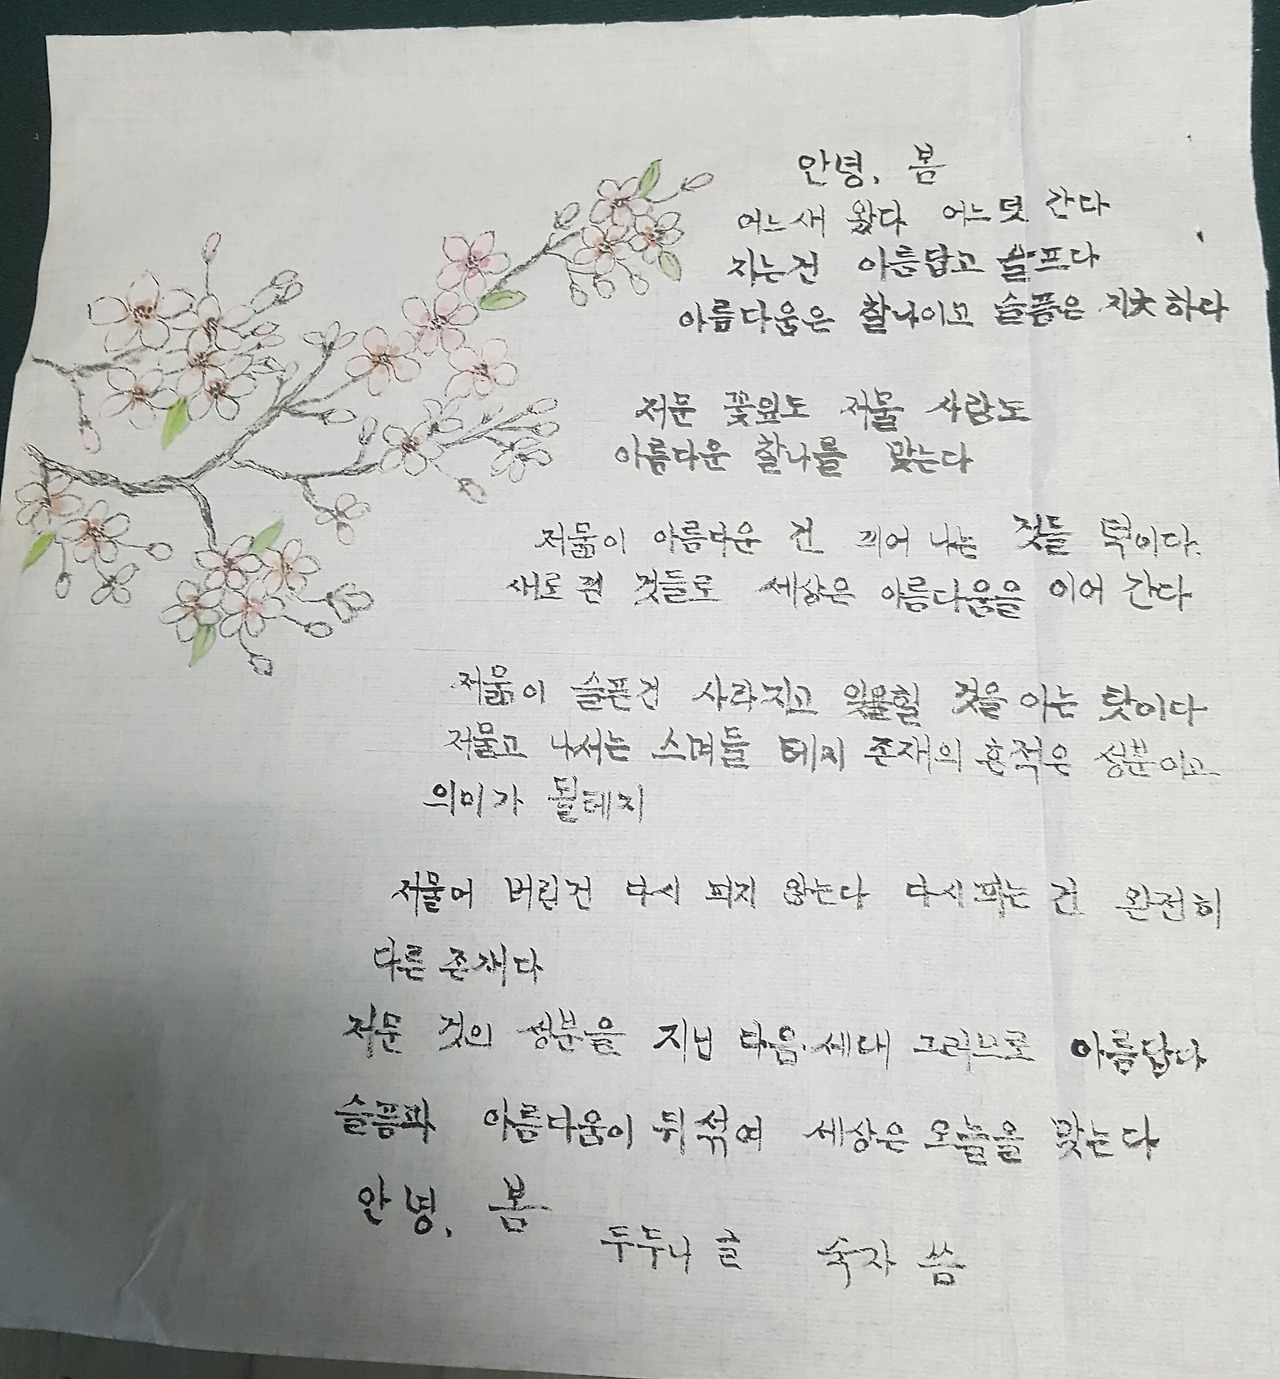 안녕, 봄
어느새 왔다 어느덧 간다
지는건 아름답고 슬프다
아름다움은 찰나이고 슬픔은 지大하다
저문 꽃잎도 저물 사람도
아름다운 찰나를 맞는다
저묾이 아름다운 건 끼어 나는 것들 덕이다.
새로 핀 것들로 세상은 아름다움을 이어 간다
저묾이 슬픈건 사라지고 잊힐 것을 아는 탓이다
저물고 나서는 스며들 테지 존재의 흔적은 성분이고
의미가 될테지
저물어 버린건 다시 피지 않는다 다시 피는 건 완전히
다른 존재다
저문 것의 성분을 지닌 다음 세대 그러므로 아름답다
슬픔과 아름다움이 뒤섞여 세상은 오늘을 맞는다
안녕, 봄
두두나 글 숙자 씀